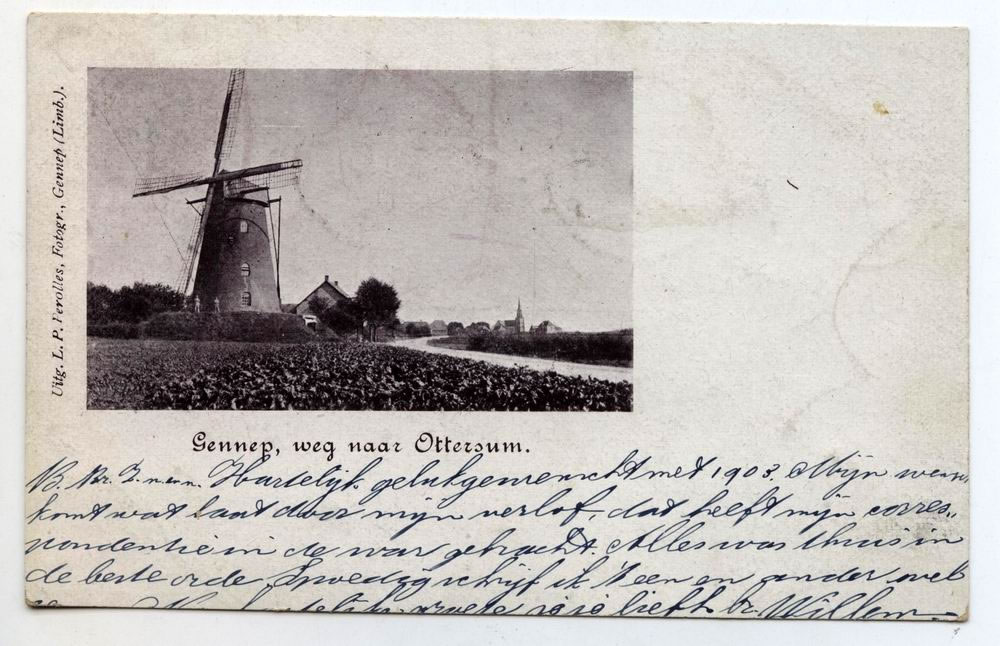 Uitg. L. P. Perolles, Fotogr., Gennep (Limb.).
Gennep, weg naar Ottersum.
B. Br. Z. n. en n. Hartelijk gelukgewenscht met 1903. Mijn wensch
komt wat laat door mijn verlof, dat heeft mijn corres„
pondentie in de war gebracht. Alles was thuis in
de beste orde. Spoedig schrijf ik 't een en ander over
Hartelijk groete liefh. br. Willem